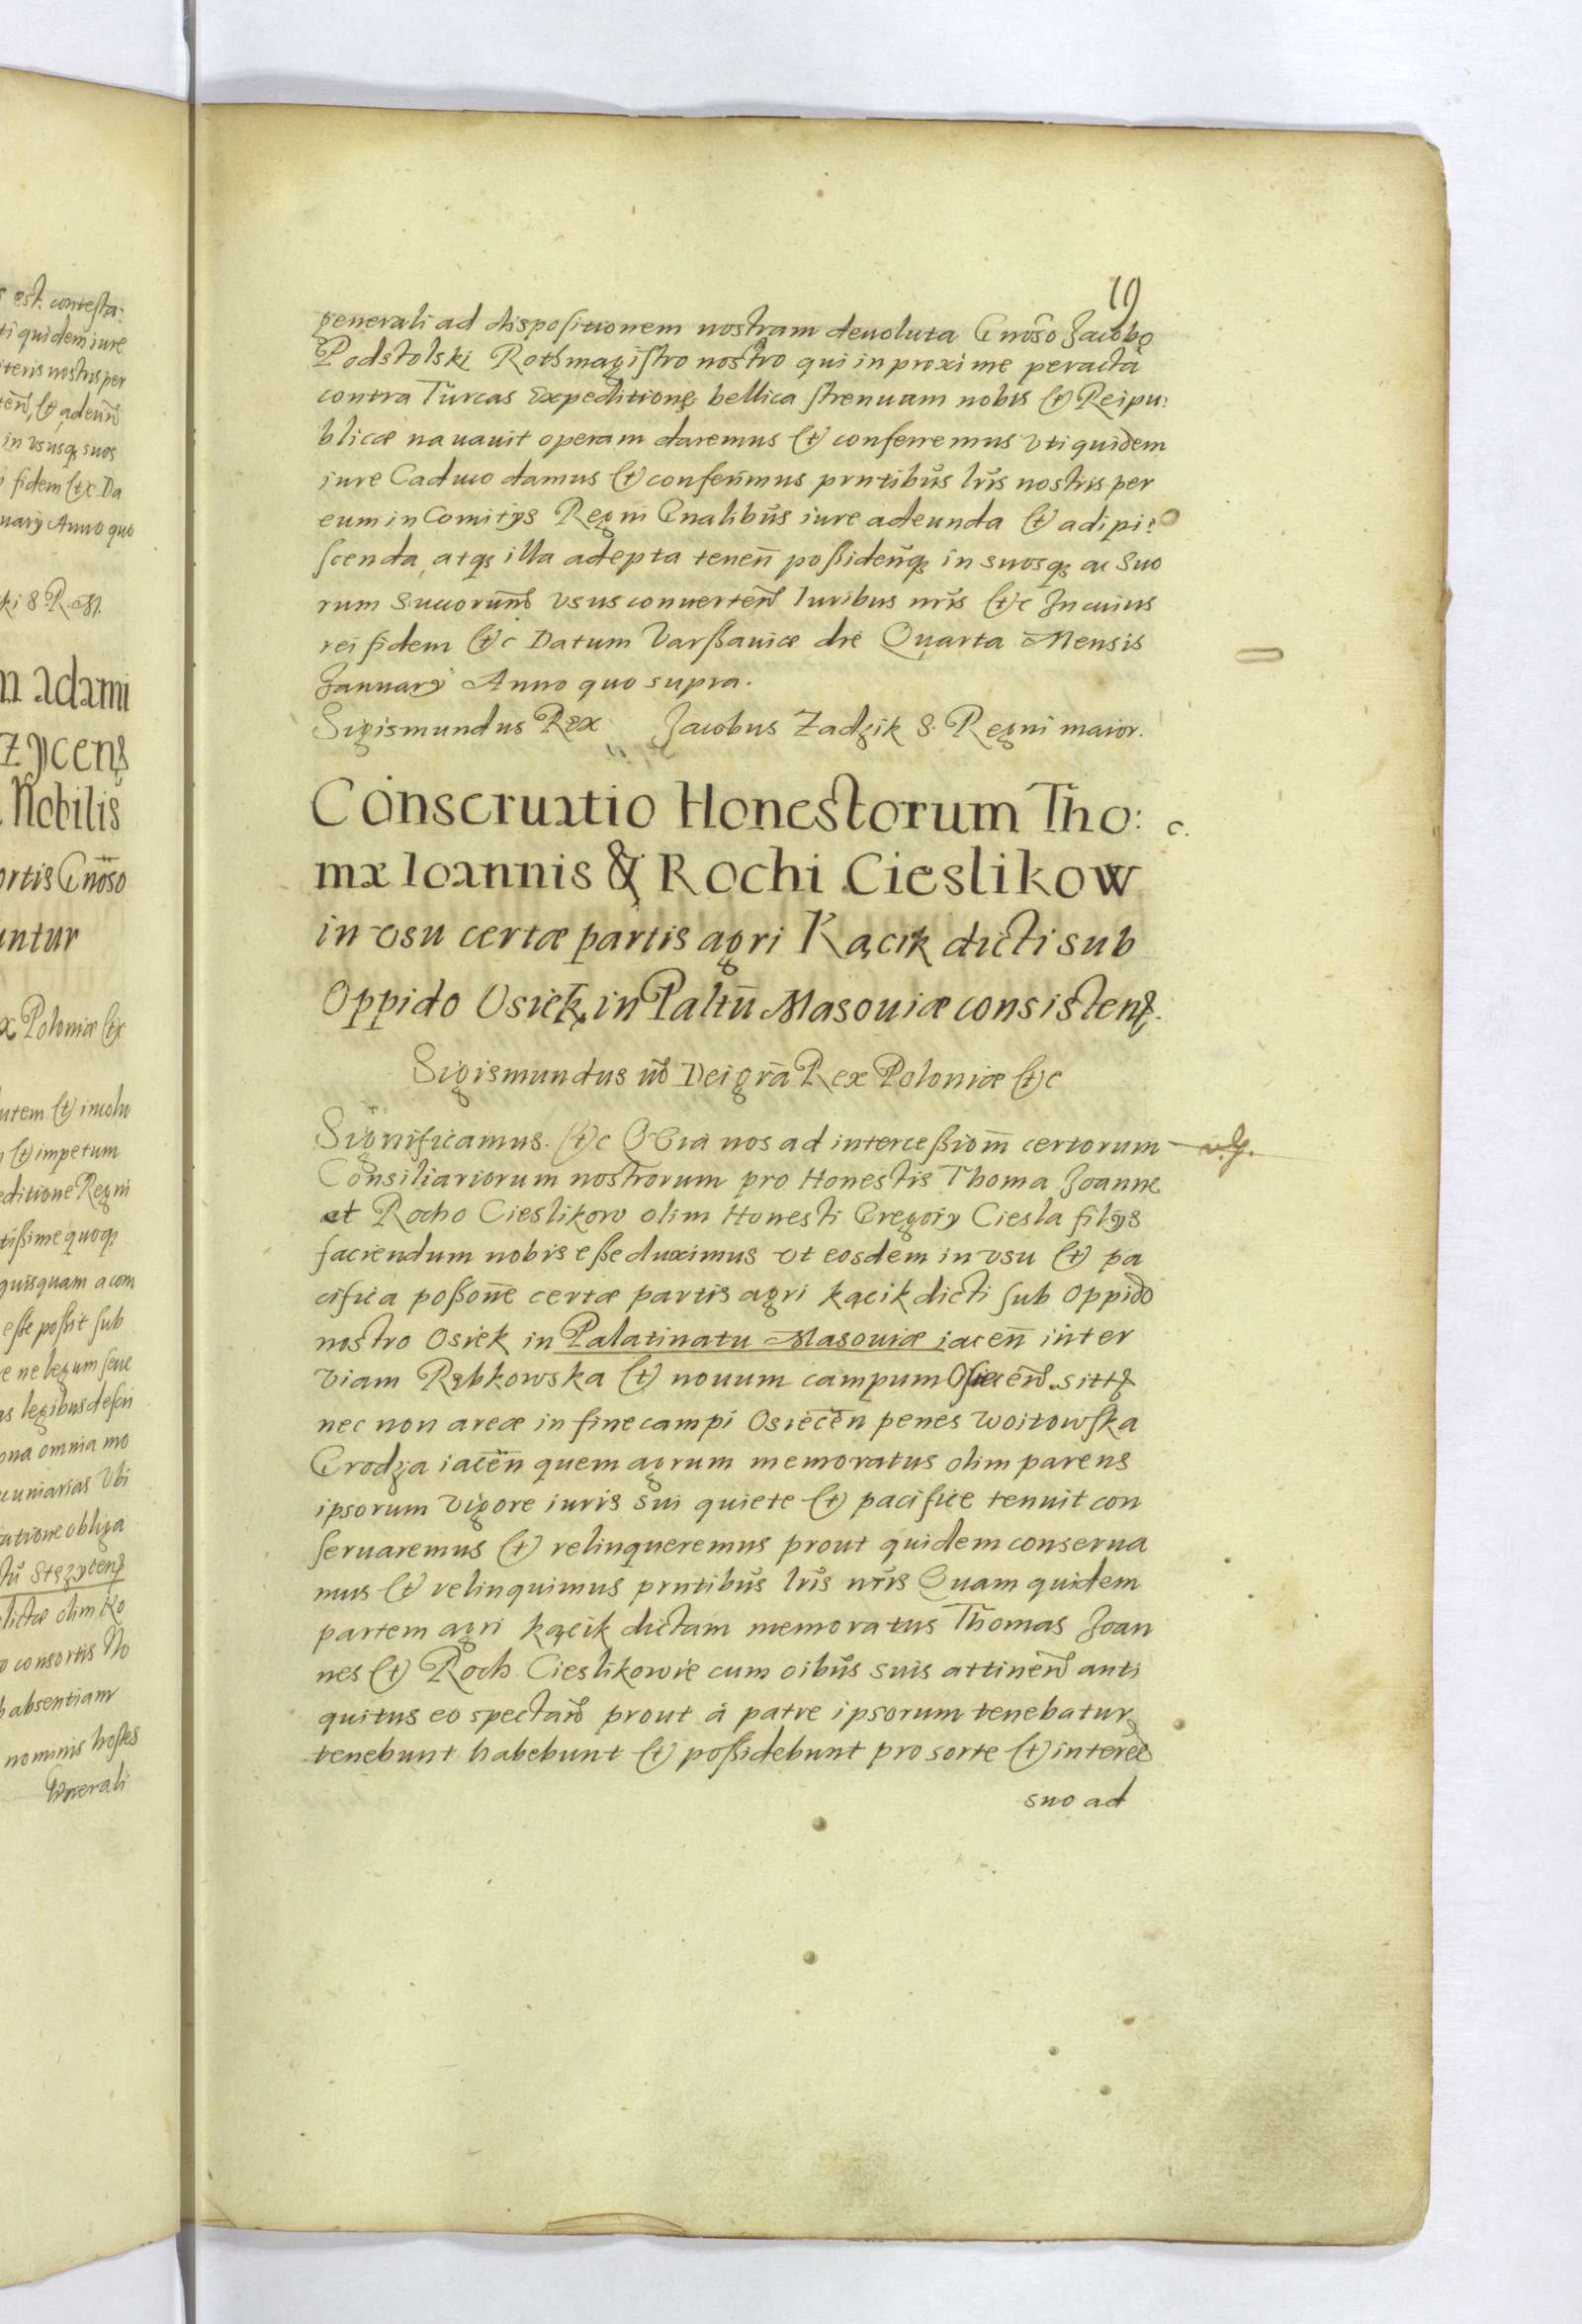 s est contesta:
ti quidem iure
teris nostris per
in ususq suos
fidem etc Da
nuarÿ Anno quo
ki S. R. M.
m adami
Nobilis
ortis Gnoso
untur
x Poloniæ etc
utem et inuolu
et impetum
editione Regni
tißime quoq
quisquam a com
eße poßit sub
e ne legum seue
as legibus descri
ona omnia mo
cuniarias Vbi
ratione obliga
lictæ olim Ro
o consortis No
b absentiam
nominis hostes
Generali
19
generali ad dispositionem nostram deuoluta Gnoso Jacobo
Podstolski Rothmagistro nostro qui in proxime peracta
contra Turcas Expeditione bellica strenuam nobis et Reipu:
blicæ nauauit operam daremus et conferremus vti quidem
iure Caduco damus et conferimus pntibus lris nostris per
eum in Comitÿs Regni Gnalibus iure adeunda et adipi:
scenda, atq illa adepta tenen poßidenq in suosq ac suo
rum succorum vsus conuerten Iuribus nris etc In cuius
rei fidem etc Datum Varßauiæ die Quarta Mensis
Januarÿ Anno quo supra.
Sigismundus Rex Jacobus Zadzik S. Regni maior.
Conseruatio Honestorum Tho: c.
mæ Ioannis & Rochi Cieslikow
in vsu certæ partis agri Kącik dicti sub
Oppido Osiek in Paltu Masouiæ consisten.
Sigismundus iii Dei gra Rex Poloniæ etc
Significamus. etc Quia nos ad interceßiom certorum
Consiliariorum nostrorum pro Honestis Thoma Joanne
et Rocho Cieslikow olim Honesti Gregorÿ Ciesla filÿs
faciendum nobis eße duximus vt eosdem in vsu et pa
cifica poßone certæ partis agri kącik dicti sub oppido
nostro Osiek in Palatinatu Masouiæ iacen inter
viam Rębkowska et nouum campum Osiecen sitt
nec non areæ in fine campi Osiecen penes woitowska
Grodza iacen quem agrum memoratus olim parens
ipsorum vigore iuris sui quiete et pacifice tenuit con
seruaremus et relinqueremus prout quidem conserua
mus et relinquimus pntibus lris nris Quam quidem
partem agri kącik dictam memoratus Thomas Joan
nes et Roch Cieslikowie cum oibus suis attinen anti
quitus eo spectan prout à patre ipsorum tenebatur
tenebunt habebunt et poßidebunt pro sorte et interee
suo ad